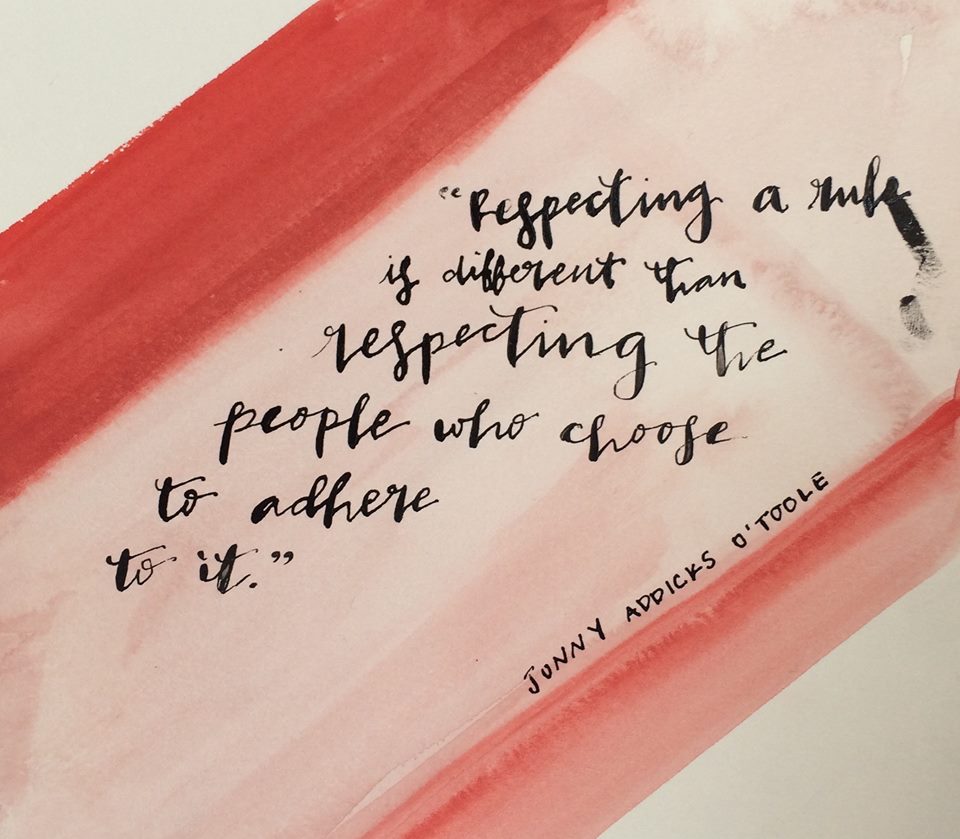 “Respecting a rule
is different than
respecting the
people who choose
to adhere
to it.”
JONNY ADDICKS O'TOOLE